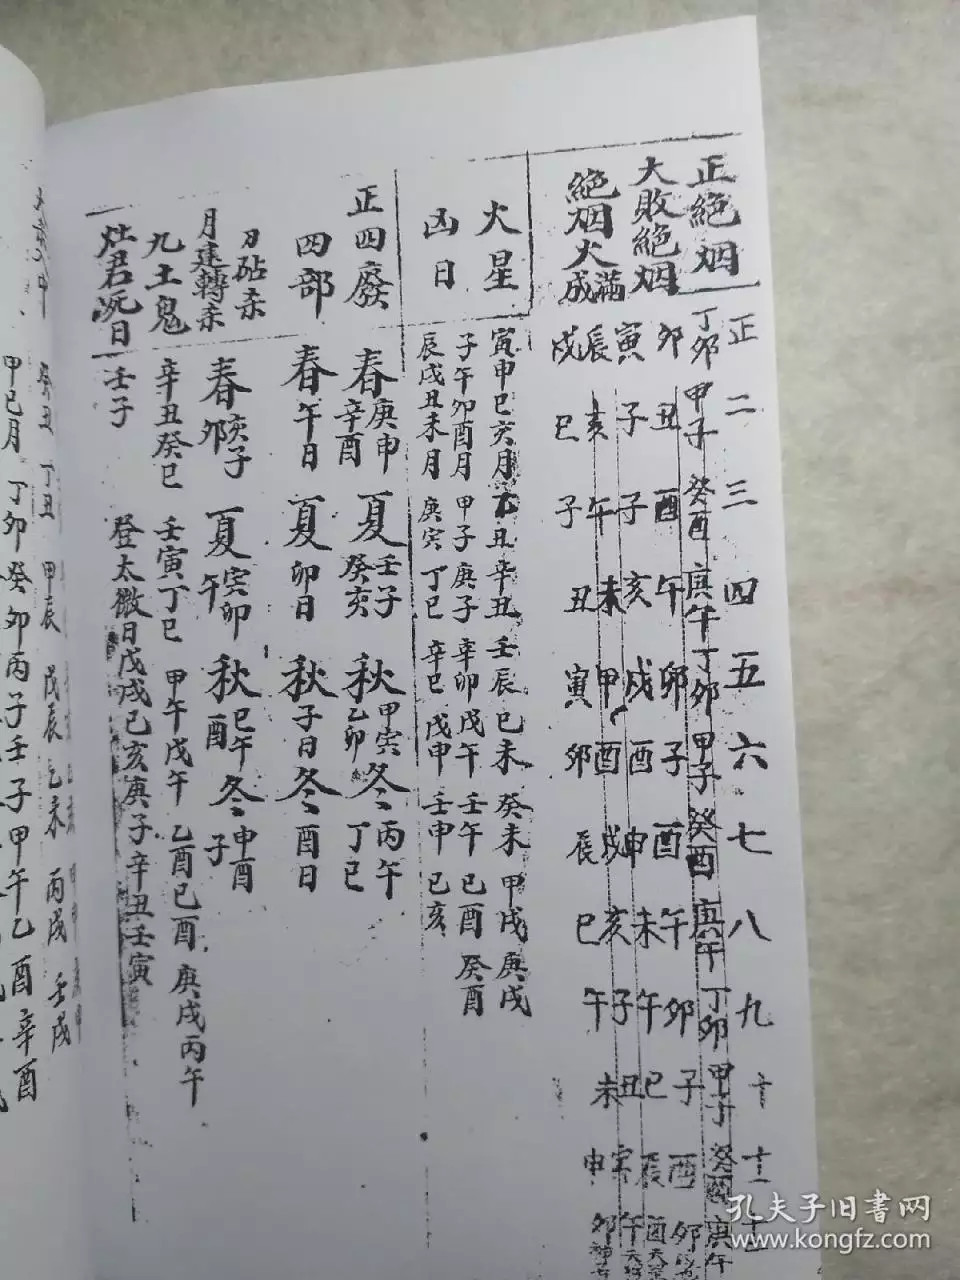 正 二 三 四 五 六 七 八 九 十 十一 十二
正絕烟 丁卯 甲子 癸酉 庚午 丁卯 甲子 癸酉 庚午 丁卯 甲子 癸酉 庚午
大敗絕烟 卯 丑 酉 午 卯 子 酉 午 卯 子 酉 卯
絕烟火
滿 寅 子 子 亥 戌 酉 申 未 午 巳 辰
成 辰 亥 午 未 申 酉 戌 亥 子 丑 午
戌 巳 子 丑 寅 卯 辰 巳 午 未 申 卯
火星
凶日
寅申巳亥月 乙丑 辛丑 壬辰 巳未 癸未 甲戌 庚戌
子午卯酉月 甲子 庚子 辛卯 戊午 壬午 巳酉 癸酉
辰戌丑未月 庚寅 丁巳 辛巳 戊申 壬申 巳亥
正四廢 春 庚申 辛酉 夏 壬子 癸亥 秋 甲寅 乙卯 冬 丙午 丁巳
四部 春午日 夏卯日 秋子日 冬酉日
刀砧杀
月建轉杀
春 亥子 卯 夏 寅卯 午 秋 巳午 酉 冬 申酉 子
九土鬼 辛丑 癸巳 壬寅 丁巳 甲午 戊午 乙酉 巳酉 庚戌 丙午
灶君死日 壬子 登太微日 戊戌 己亥 庚子 辛丑 壬寅
癸丑 丁丑 甲辰 戊辰 乙未 丙戌 壬戌
甲巳月 丁卯 癸卯 丙子 壬子 甲午 乙酉 辛酉
孔夫子旧书网
www.kongfz.com